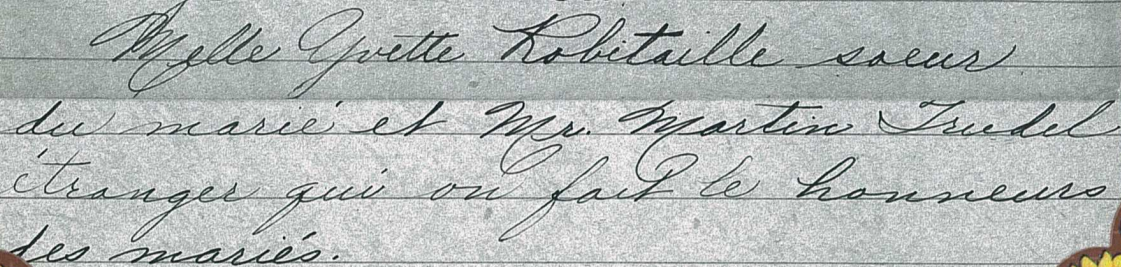 Melle Yvette Robitaille soeur
du marié et Mr. Martin Trudel
étranger qui on fait le honneurs
des mariés.